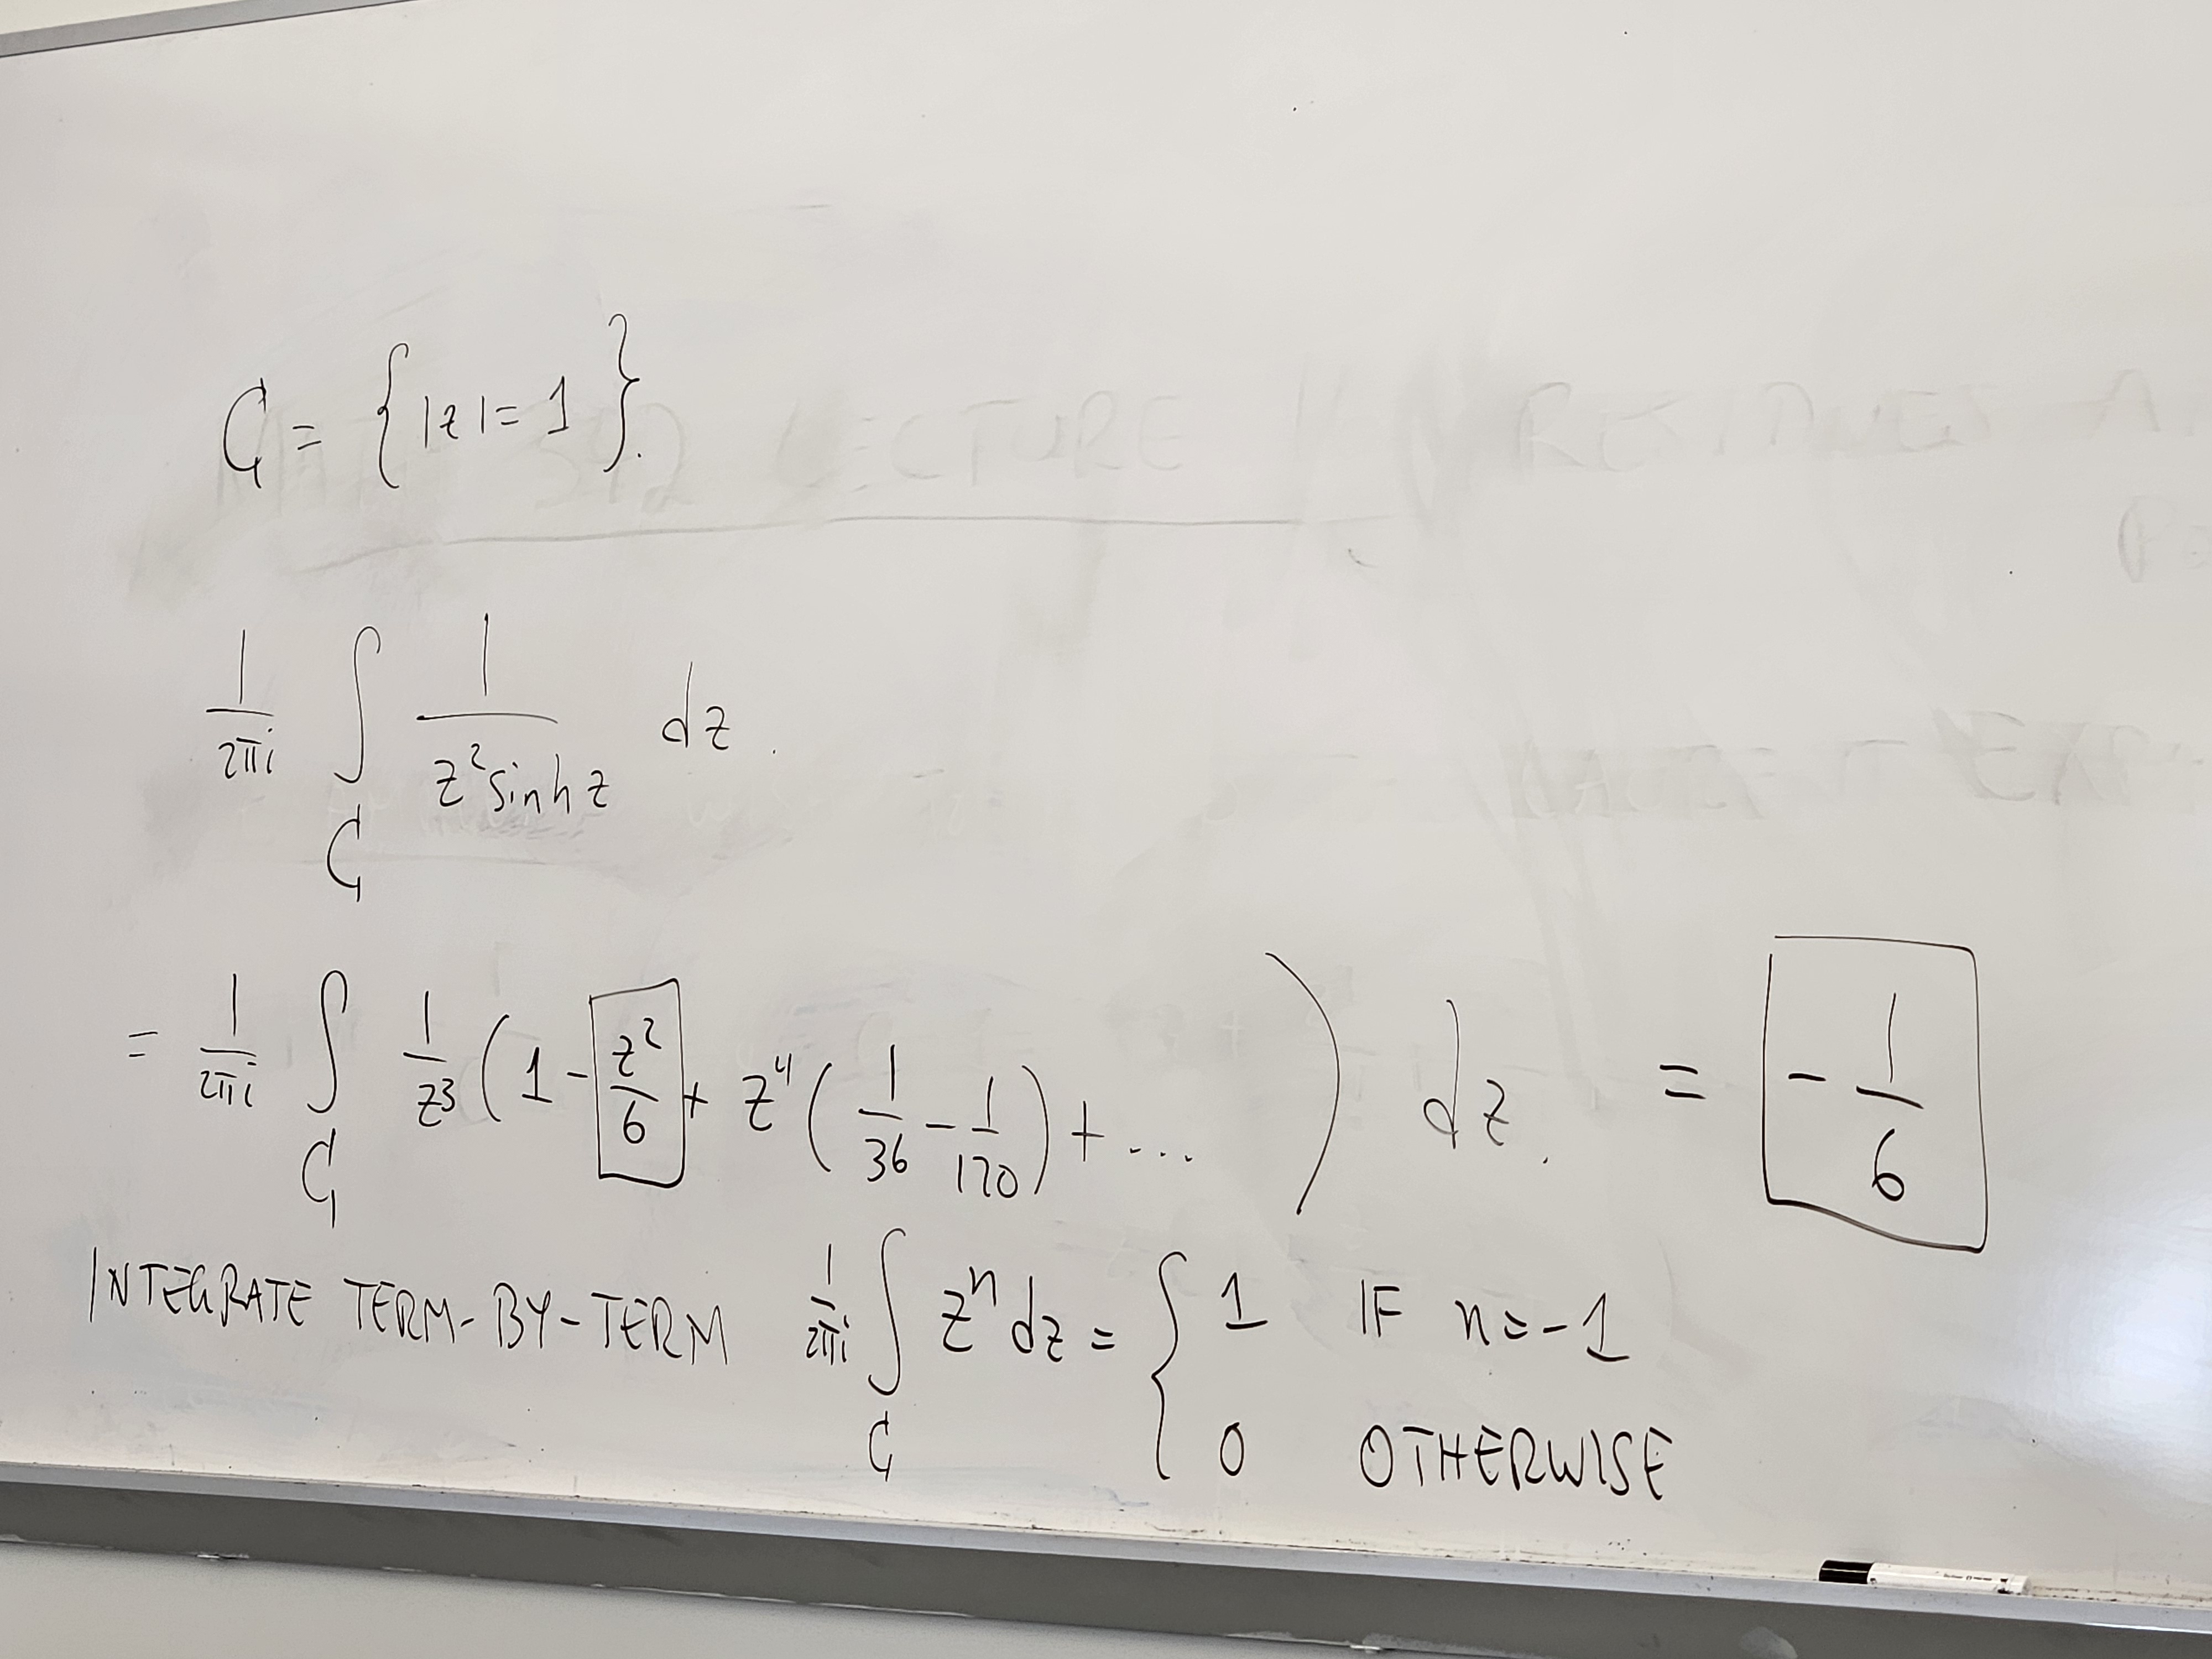 C = { |z| = 1 }.
1/2πi ∫_C 1/(z² sinh z) dz.
= 1/2πi ∫_C 1/z³ (1 - z²/6 + z⁴(1/36 - 1/120) + ...) dz. = -1/6
INTEGRATE TERM-BY-TERM 1/2πi ∫_C zⁿ dz = { 1 IF n=-1
0 OTHERWISE